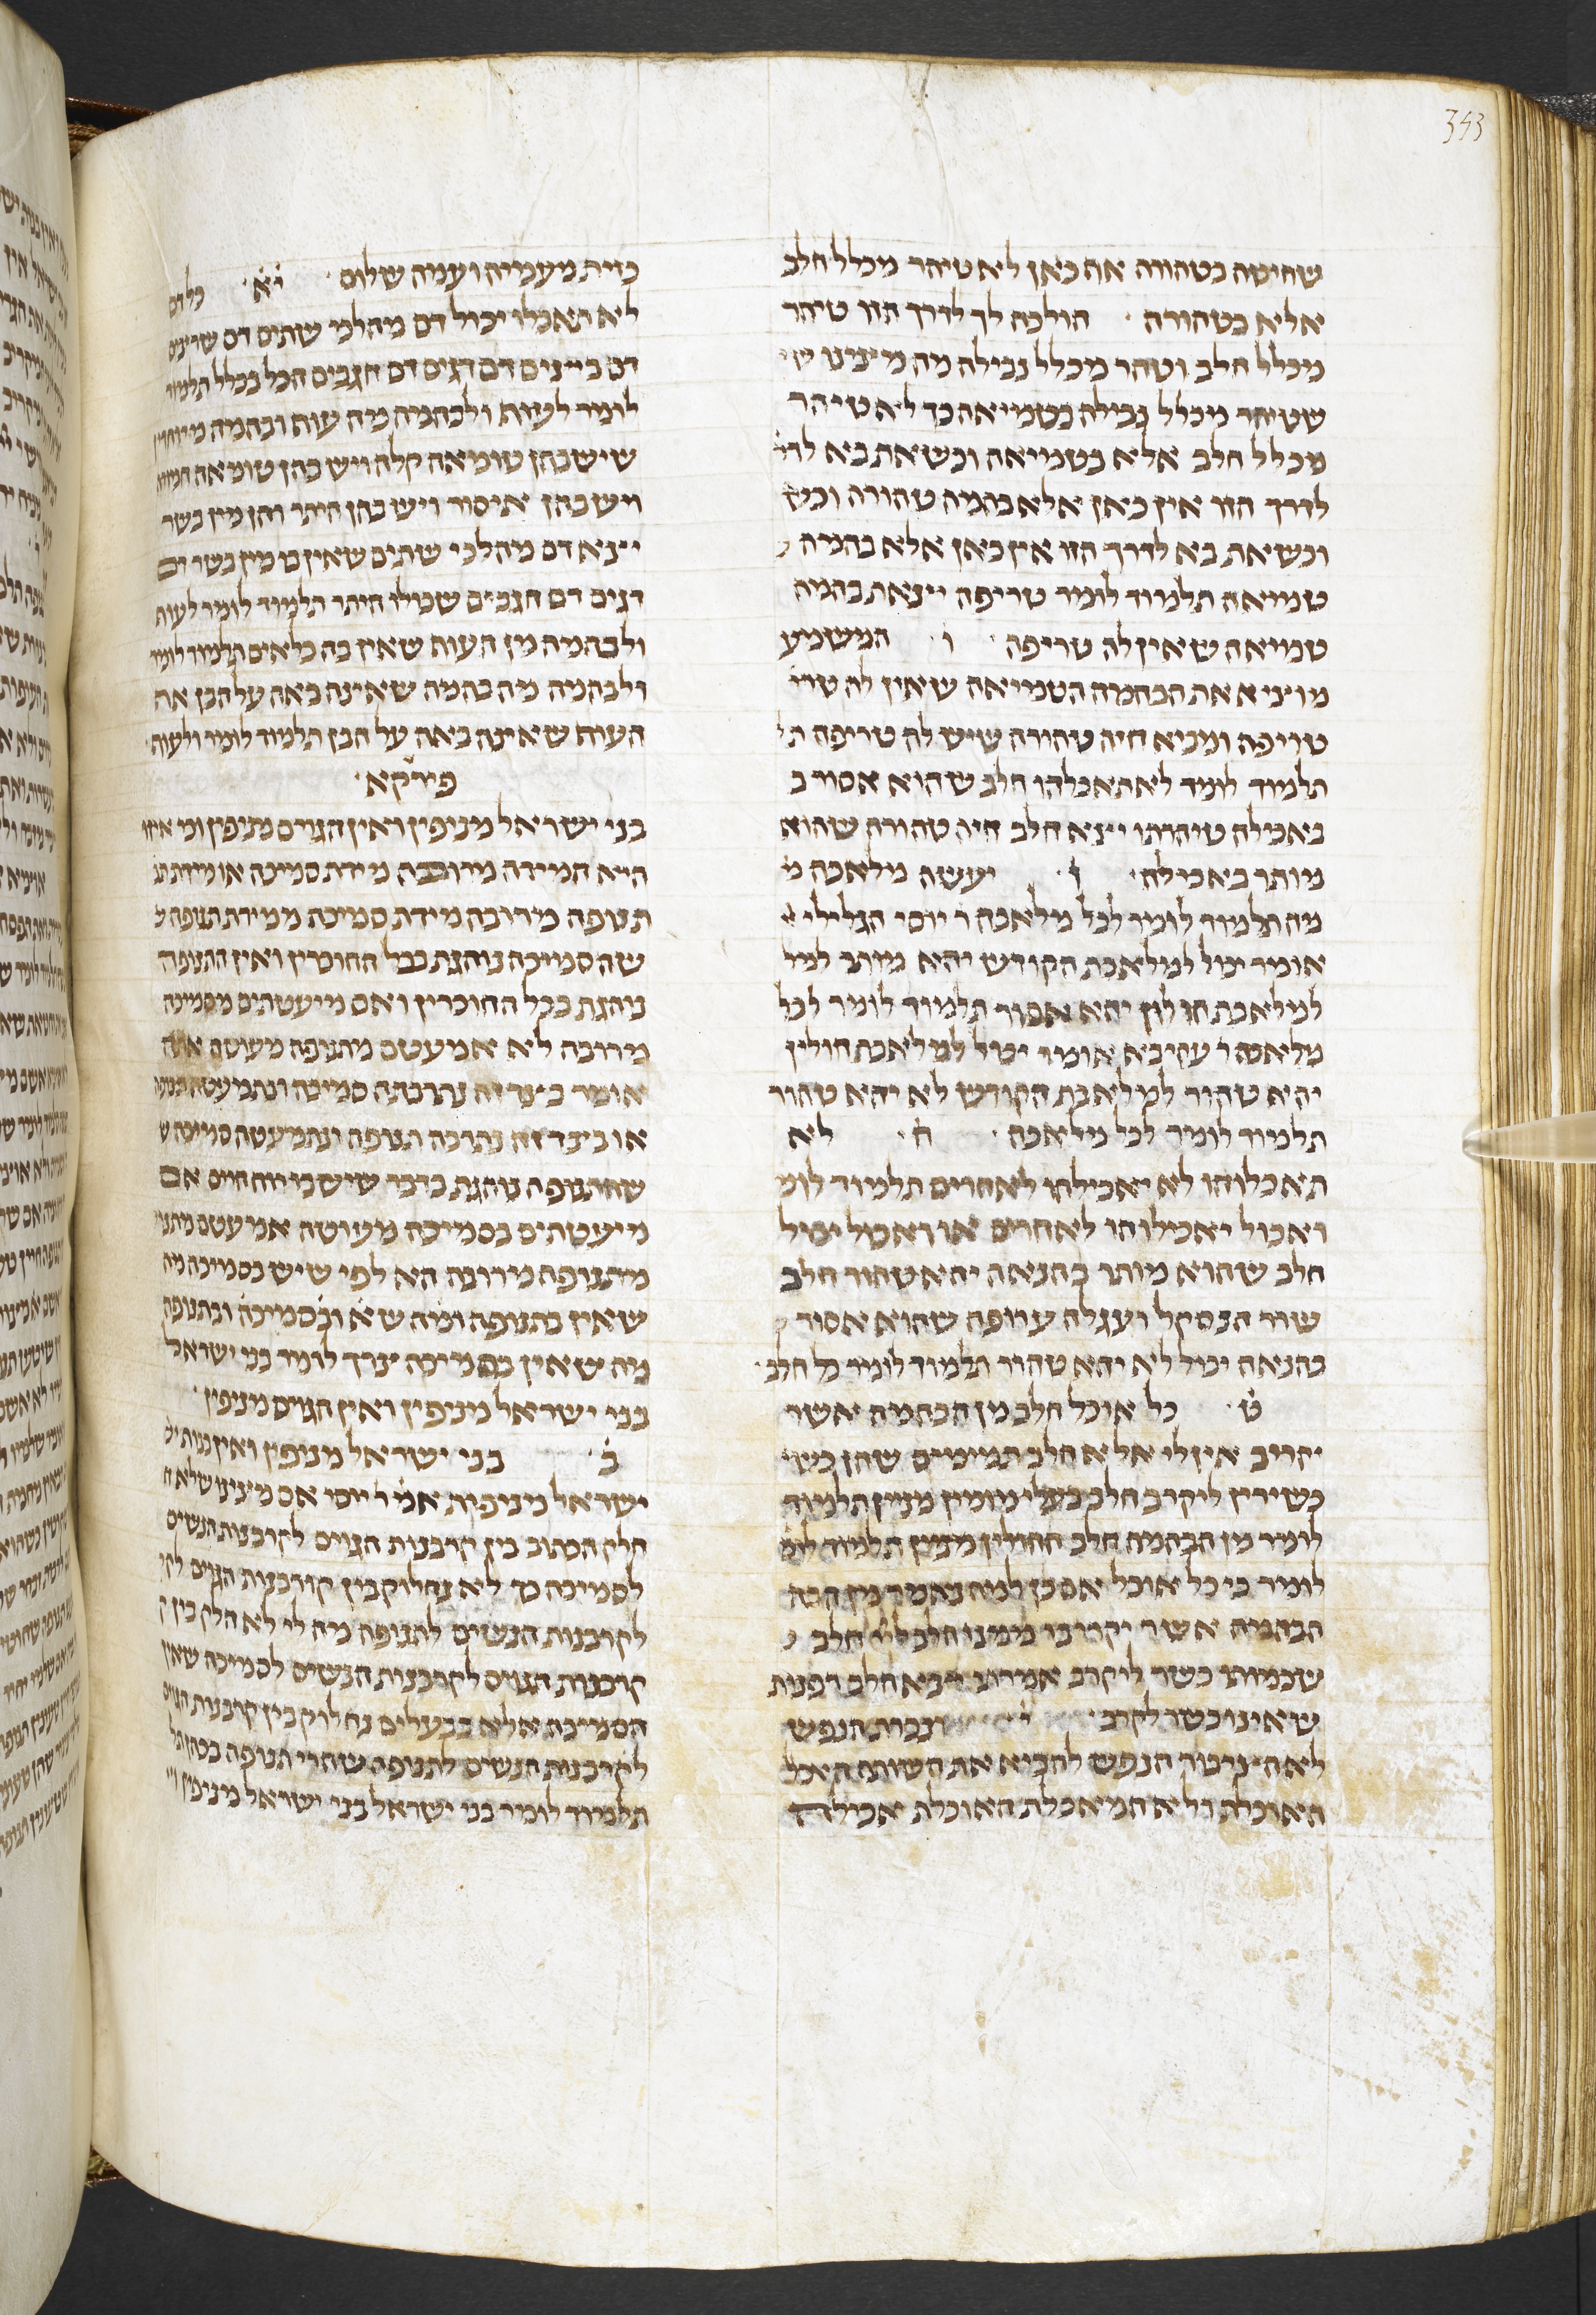 343
שחיטה בטהורה אה כאן לא טיהר מכלל חלב
אלא בטהורה · הולכה לך לדרך הזו טיהר
מכלל חלב וטהר מכלל נבילה מה מצינו
שטיהר מכלל נבילה בטמיאה כך לא טיהר
מכלל חלב אלא בטמיאה וכשאת בא לדר
לדרך הזו אין כאן אלא בהמה טהורה וכש
וכשאת בא לדרך הזו אין כאן אלא בהמה
טמיאה תלמוד לומר טריפה יצאת בהמה
טמיאה שאין לה טריפה · ו · המשמע
מוציא את הבהמה הטמיאה שאין לה טרי
טריפה ומביא חיה טהורה שיש לה טריפה ת
תלמוד לומר לא תאכלהו חלב שהוא אסור ב
באכילה טיהרתו יצא חלב חיה טהורה שהוא
מותר באכילה · ז · יעשה מלאכה מ
מה תלמוד לומר לכל מלאכה ר יוסי הגלילי א
אומר יכול למלאכת הקודש יהא מותר למל
למלאכת חולין יהא אסור תלמוד לומר לכל
מלאכה ר עקיבא אומר יכול למלאכת חולין
יהא טהור למלאכת הקודש לא יהא טהור
תלמוד לומר לכל מלאכה · ח · לא
תאכלוהו לא יאכילהו לאחרים תלמוד לומ
ואכול יאכילוהו לאחרים או ואכול יכול
חלב שהוא מותר בהנאה יהא טהור חלב
שור הנסקל ועגלה ערופה שהוא אסור
בהנאה יכול לא יהא טהור תלמוד לומר כל חלב ·
ט · כל אוכל חלב מן הבהמה אשר
יקריב אין לי אלא חלב תמימים שהן כשי
כשירין ליקרב חלב בעלי מומין מנין תלמוד
לומר מן הבהמה חלב החולין מנין תלמוד לומ
לומר כי כל אוכל אם כן למה נאמר מן הבה
הבהמה אשר יקריבו ממנו חלב חלב
שכמותו כשר ליקרב אמרתו יצא חלב דפנות
שאינו כשר לקרב · י · ונכרתה הנפש
לא הציבור הנפש להביא את השותה האכל
האוכלת ולא המאכלת האוכלת אכילה
כזית מעמיה ועמה שלום · יא · כל דם
לא תאכלו יכול דם מהלכי שתים דם שרצים
דם ביצים דם דגים דם חגבים הכל בכלל תלמוד
לומר לעוף ולבהמה מה עוף ובהמה מיוחדין
שיש בהן טומאה קלה ויש בהן טומאה חמורה
ויש בהן איסור ויש בהן היתר והן מין בשר
יצא דם מהלכי שתים שאין בו מין בשר דם
דגים דם חגבים שכולו היתר תלמוד לומר לעוף
ולבהמה מן העוף שאין בה כלאים תלמוד לומר
ולבהמה מה בהמה שאינה באה על הבן את
העוף שאינה באה על הבן תלמוד לומר ולעוף ·
פירקא ·
בני ישראל מניפין ואין הגוים מניפין ומי איזו
היא המידה מרובה מידת סמיכה או מידת תנ
תנופה מרובה מידת סמיכה ממידת תנופה ל
שהסמיכה נוהגת בכל החוברין ואין התנופה
נוהגת בכל החוברין ואם מיעטתים מסמיכה
מרובה לא אמעטם מתנופה מעוטה אתה
אומר בצד זה נתרבתה סמיכה ונתמעטה תנופה
או בצד זה נתרבה תנופה ונתמעטה סמיכה ש
שהתנופה נוהגת בדבר שיש בו רוח חיים אם
מיעטתים בסמיכה מעוטה אמעטם מתנו
מתנופה מרובה הא לפי שיש בסמיכה מה
שאין בתנופה ומה שא ובסמיכה ובתנופה
מה שאין בסמיכה צרך לומר בני ישראל
בני ישראל מניפין ואין הגוים מניפין ·
ב · בני ישראל מניפין ואין בנות יש
ישראל מניפות אמ ר יוסי אם מצינו שלא ח
חלק הכתוב בין קרבנות הגוים לקרבנות הנשים
לסמיכה כך לא נחלוק בין קורבנות הגוים לק
לקרבנות הנשים לתנופה מה לי לא חלק בין ק
קרבנות הגוים לקרבנות הנשים לסמיכה שאין
הסמיכה אלא בבעלים נחלוק בין קרבנות הגוים
לקרבנות הנשים לתנופה שהרי תנופה בכהן תל
תלמוד לומר בני ישראל בני ישראל מניפין וא